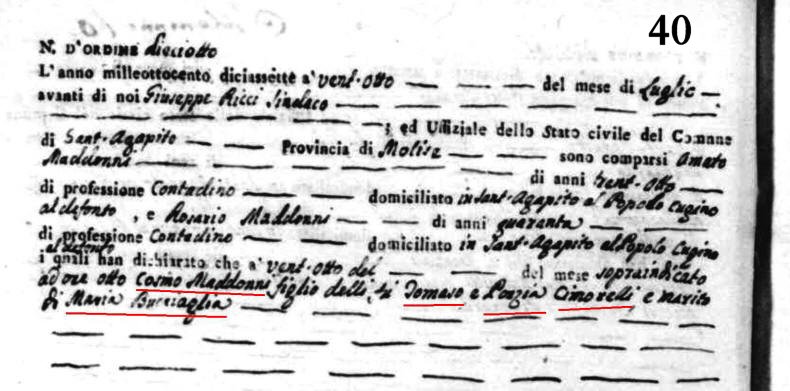 40
N. D'ORDINE dieciotto
L'anno milleottocento diciassette a' vent-otto — — — del mese di Luglio —
avanti di noi Giuseppe Ricci Sindaco — — — — — — — —
— — — — — — — ; ed Uffiziale dello Stato civile del Comune
di Sant-Agapito — — Provincia di Molise — — — sono comparsi Amato
Maddonni — — — — — — — — di anni trent-otto —
di professione Contadino — — — domiciliato in Sant-Agapito al Popolo Cugino
al defonto , e Rosario Maddonni — — — di anni quaranta — —
di professione Contadino — — — domiciliato in Sant-Agapito al Popolo Cugino
al defonto
i quali han dichiarato che a' vent-otto del — — — del mese sopraindicato
ad ore otto Cosmo Maddonni figlio delli Tomaso e Ponzia Cimorelli e marito
di Maria Bucciaglia — — — — — — — —